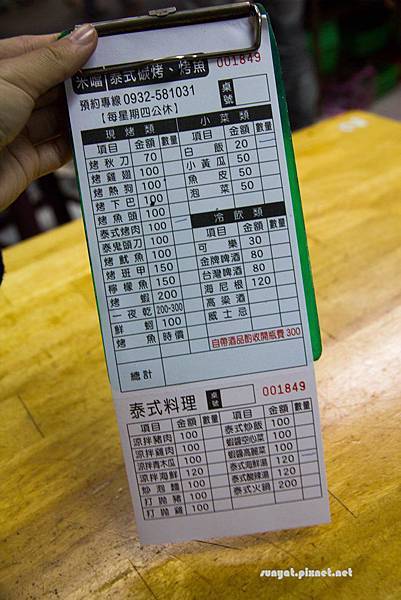 泰式碳烤、烤魚 001849
預約專線 0932-581031
【每星期四公休】
桌號
現烤類
項目 金額 數量
烤秋刀 70
烤雞翅 100
烤熱狗 100
烤下巴 100
烤魚頭 100
泰式烤肉 100
泰鬼頭刀 100
烤魷魚 100
烤班甲 150
檸檬魚 150
烤蝦 200
一夜乾 200-300
鮮蚵 100
烤魚 時價
總計
小菜類
項目 金額 數量
白飯 20
小黃瓜 50
魚皮 50
泡菜 50
冷飲類
項目 金額 數量
可樂 30
金牌啤酒 80
台灣啤酒 80
海尼根 120
高梁酒
威士忌
自帶酒品酌收開瓶費300
泰式料理 桌號 001849
項目 金額 數量
涼拌豬肉 100
涼拌雞肉 100
涼拌青木瓜 100
涼拌海鮮 120
炒泡麵 100
打拋豬 100
打拋雞 100
項目 金額 數量
泰式炒飯 100
蝦醬空心菜 100
蝦醬高麗菜 100
泰式海鮮湯 120
泰式酸辣湯 120
泰式火鍋 200
sunyat.pixnet.net